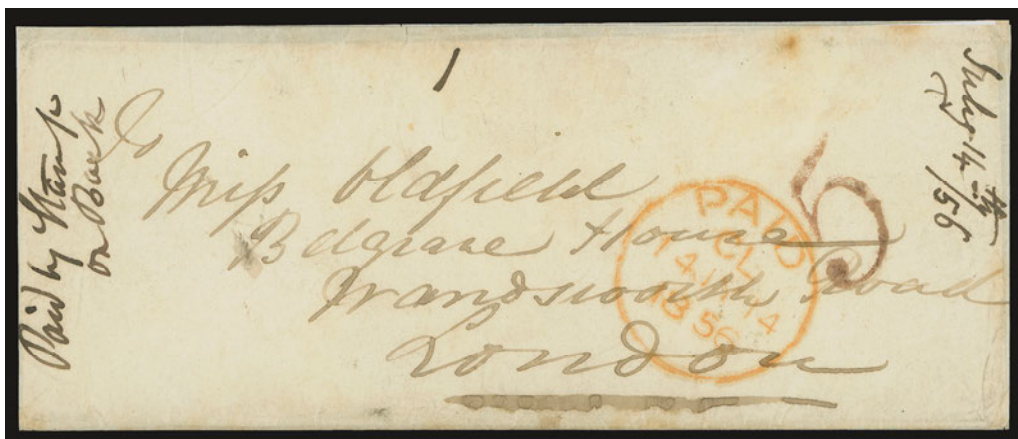 1
Paid by Stamp
on Back
To
Miss Oldfield
Belgrave House
Wandsworth Road
London
PAID
14 JY 14
1856
5
July 14th/56